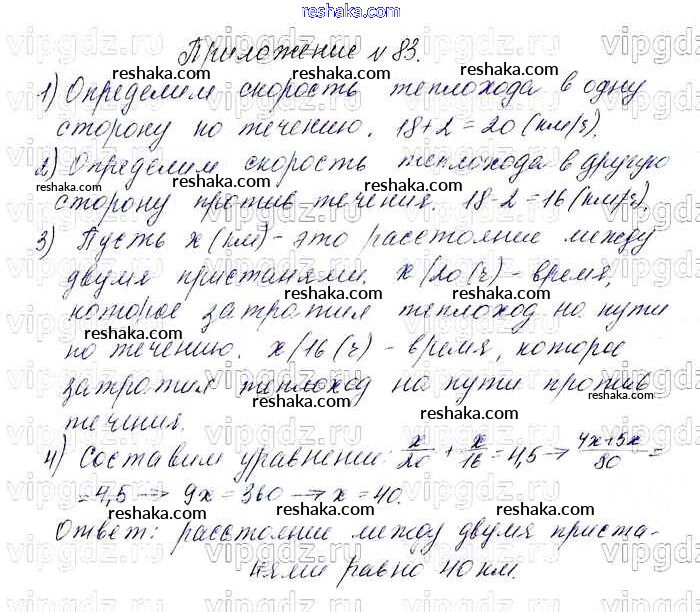 reshaka.com
Приложение № 83.
1) Определим скорость теплохода в одну
сторону по течению. 18+2=20 (км/ч).
2) Определим скорость теплохода в другую
сторону против течения. 18-2=16 (км/ч).
3) Пусть x (км) - это расстояние между
двумя пристанями. x/20 (ч) - время,
которое затратил теплоход на пути
по течению. x/16 (ч) - время, которое
затратил теплоход на пути против
течения.
4) Составим уравнение: x/20 + x/16 = 4,5 → (4x+5x)/80 =
= 4,5 → 9x = 360 → x = 40.
Ответ: расстояние между двумя приста-
нями равно 40 км.